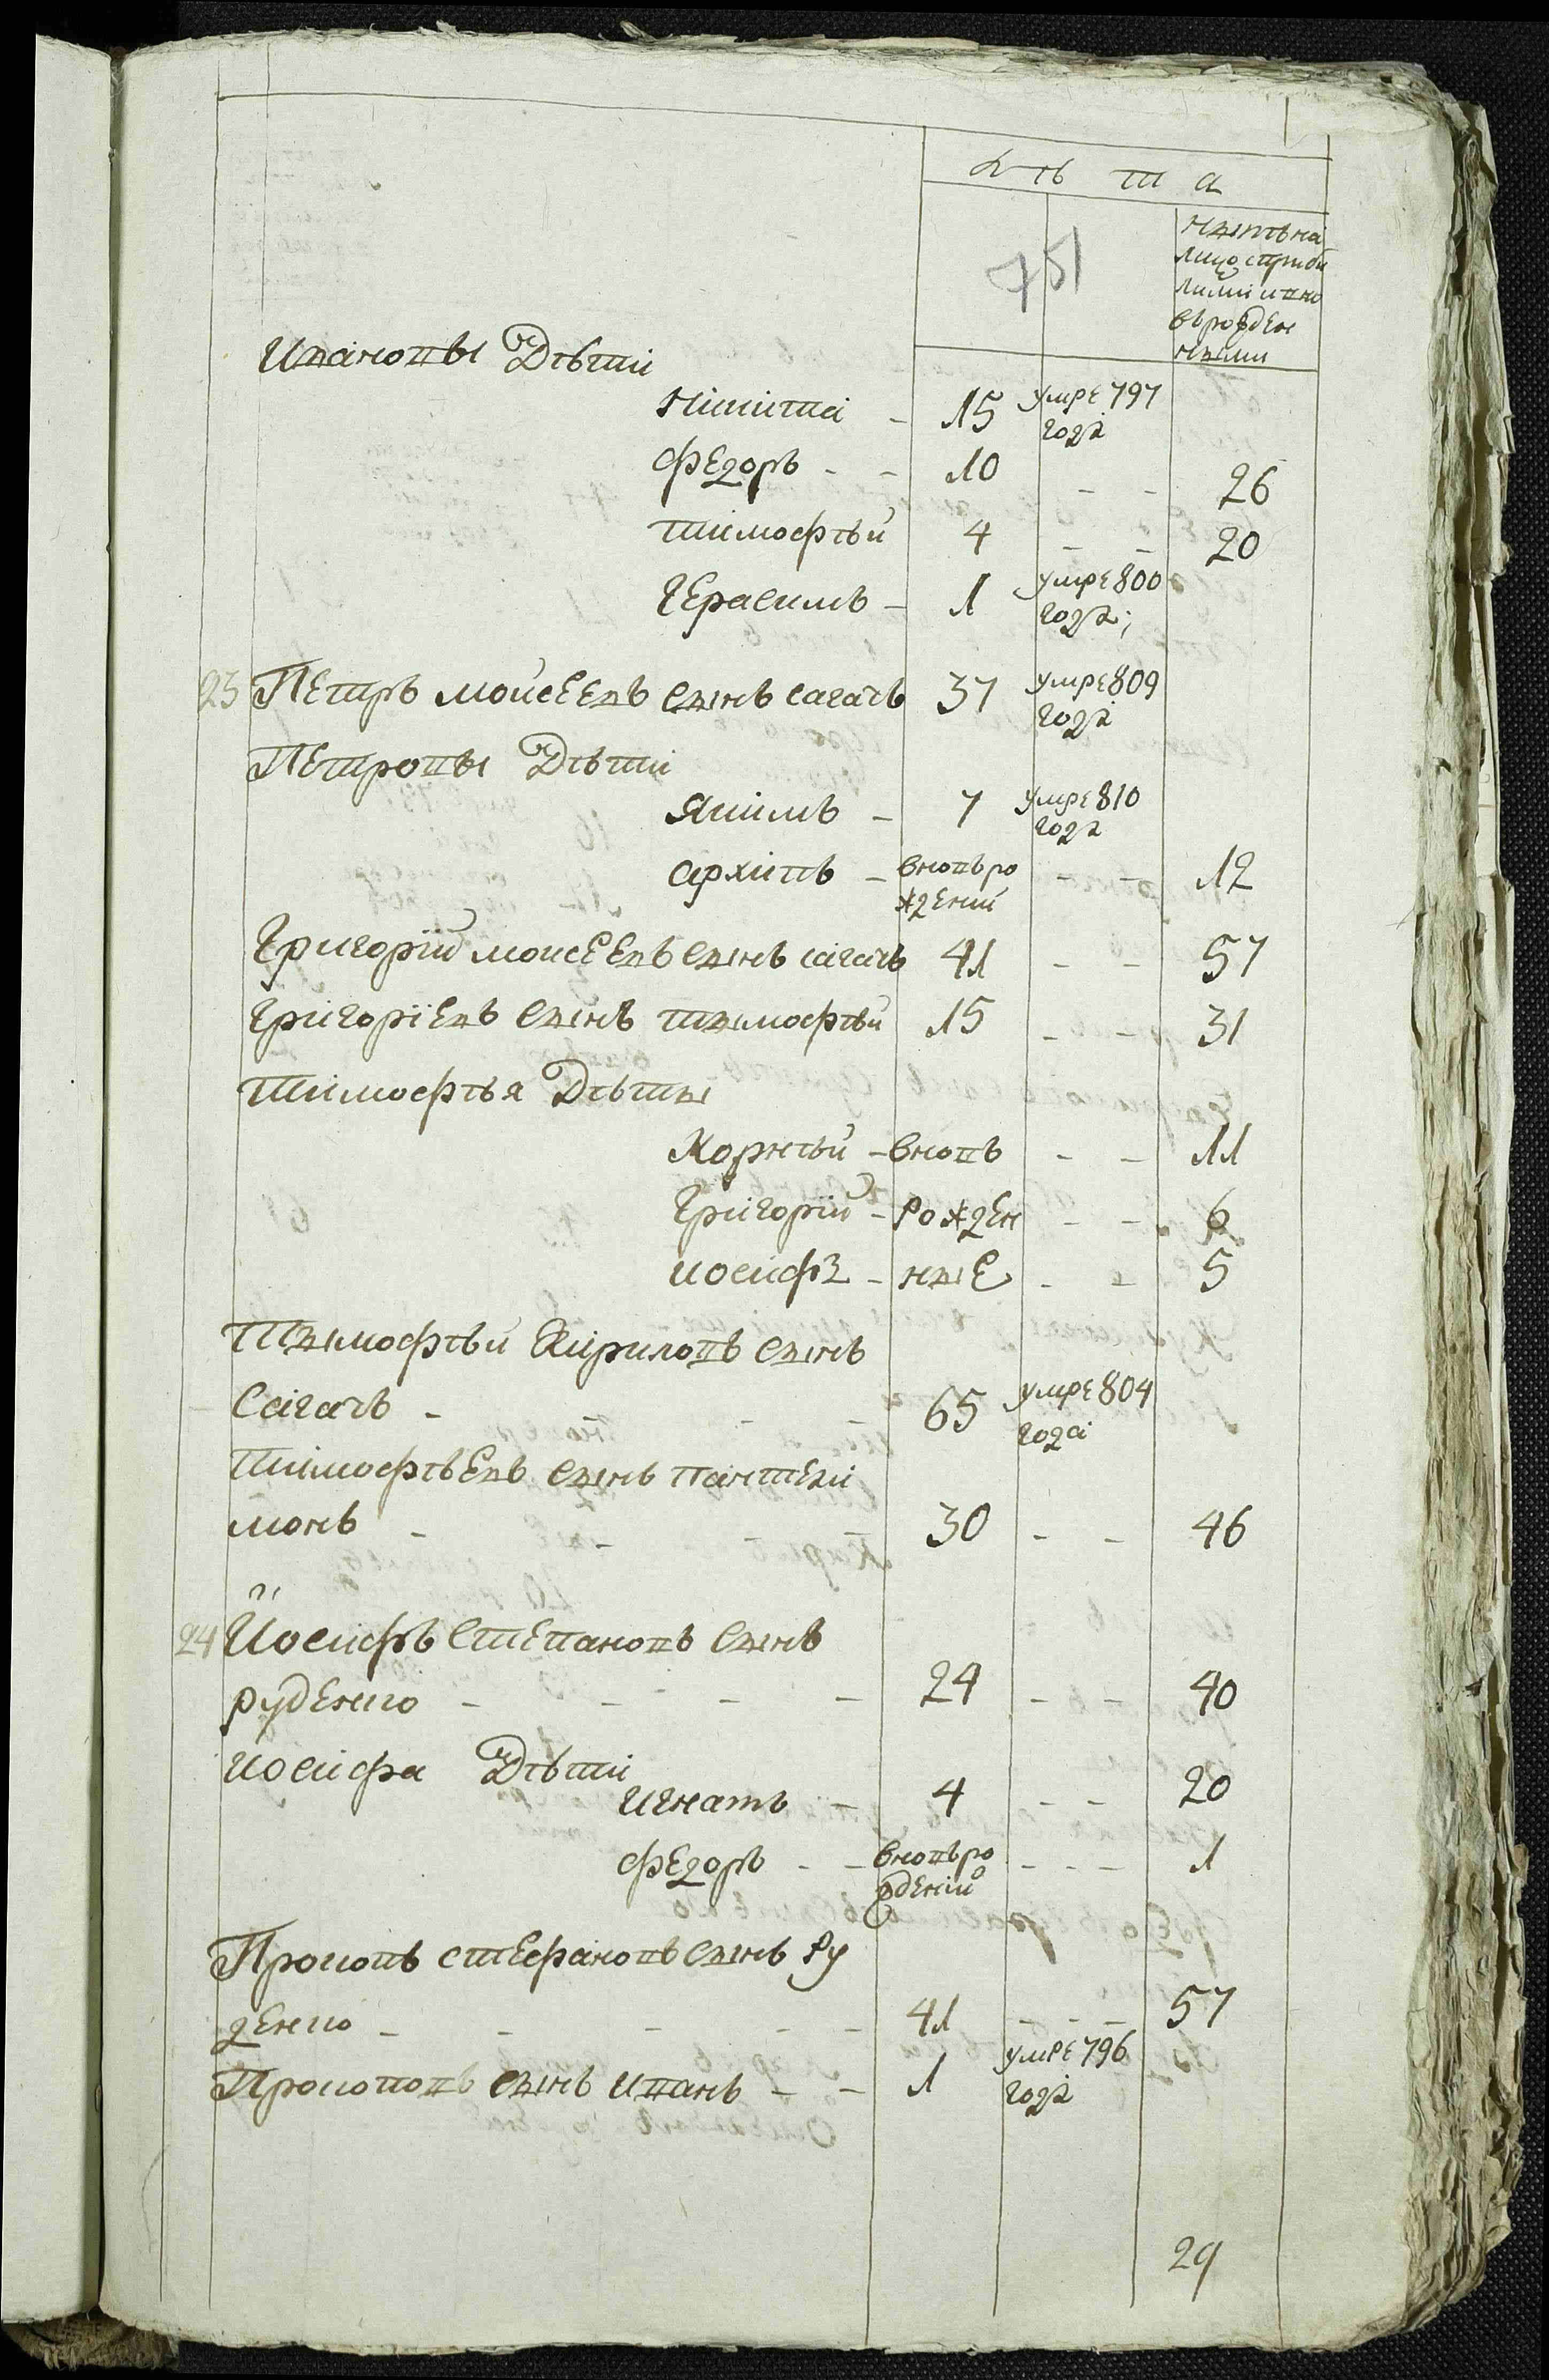 Лѣта
751
нынѣ на
лицо с прибы
лими и но
вьрожден
ными
Ивановы Дѣти
Никита - 15 умре 797
года
Федоръ - - 10 - - 26
Тимофѣй 4 - - 20
Герасимъ - 1 умре 800
года;
23 Петръ Мойсеевъ сынъ Сагачъ 37 умре 809
года
Петровы Дѣти
Якимъ - 7 умре 810
года
Архипъ - вновь ро - - 12
жденій
Григорій Моисеевъ сынъ Сагачъ 41 - - 57
Григоріевъ сынъ Тымофѣй 15 - - 31
Тимофѣя Дѣты
Корнѣй - вновь - - 11
Григорій - рожден - - 6
Иосифъ - ные - - 5
Тымофѣй Кириловъ сынъ
Сагачъ - - - 65 умре 804
года
Тимофѣевъ сынъ Пантели
монъ - - - 30 - - 46
24 Иосифъ Степановъ сынъ
Руденко - - - - - 24 - - 40
Иосифа Дѣти
Игнатъ - 4 - - 20
Федоръ - - вновь ро - - - 1
жденій
Прокопъ Стефановъ сынъ Ру
денко - - - - - 41 - - - 57
Прокоповъ сынъ Иванъ - - 1 умре 796
года
29